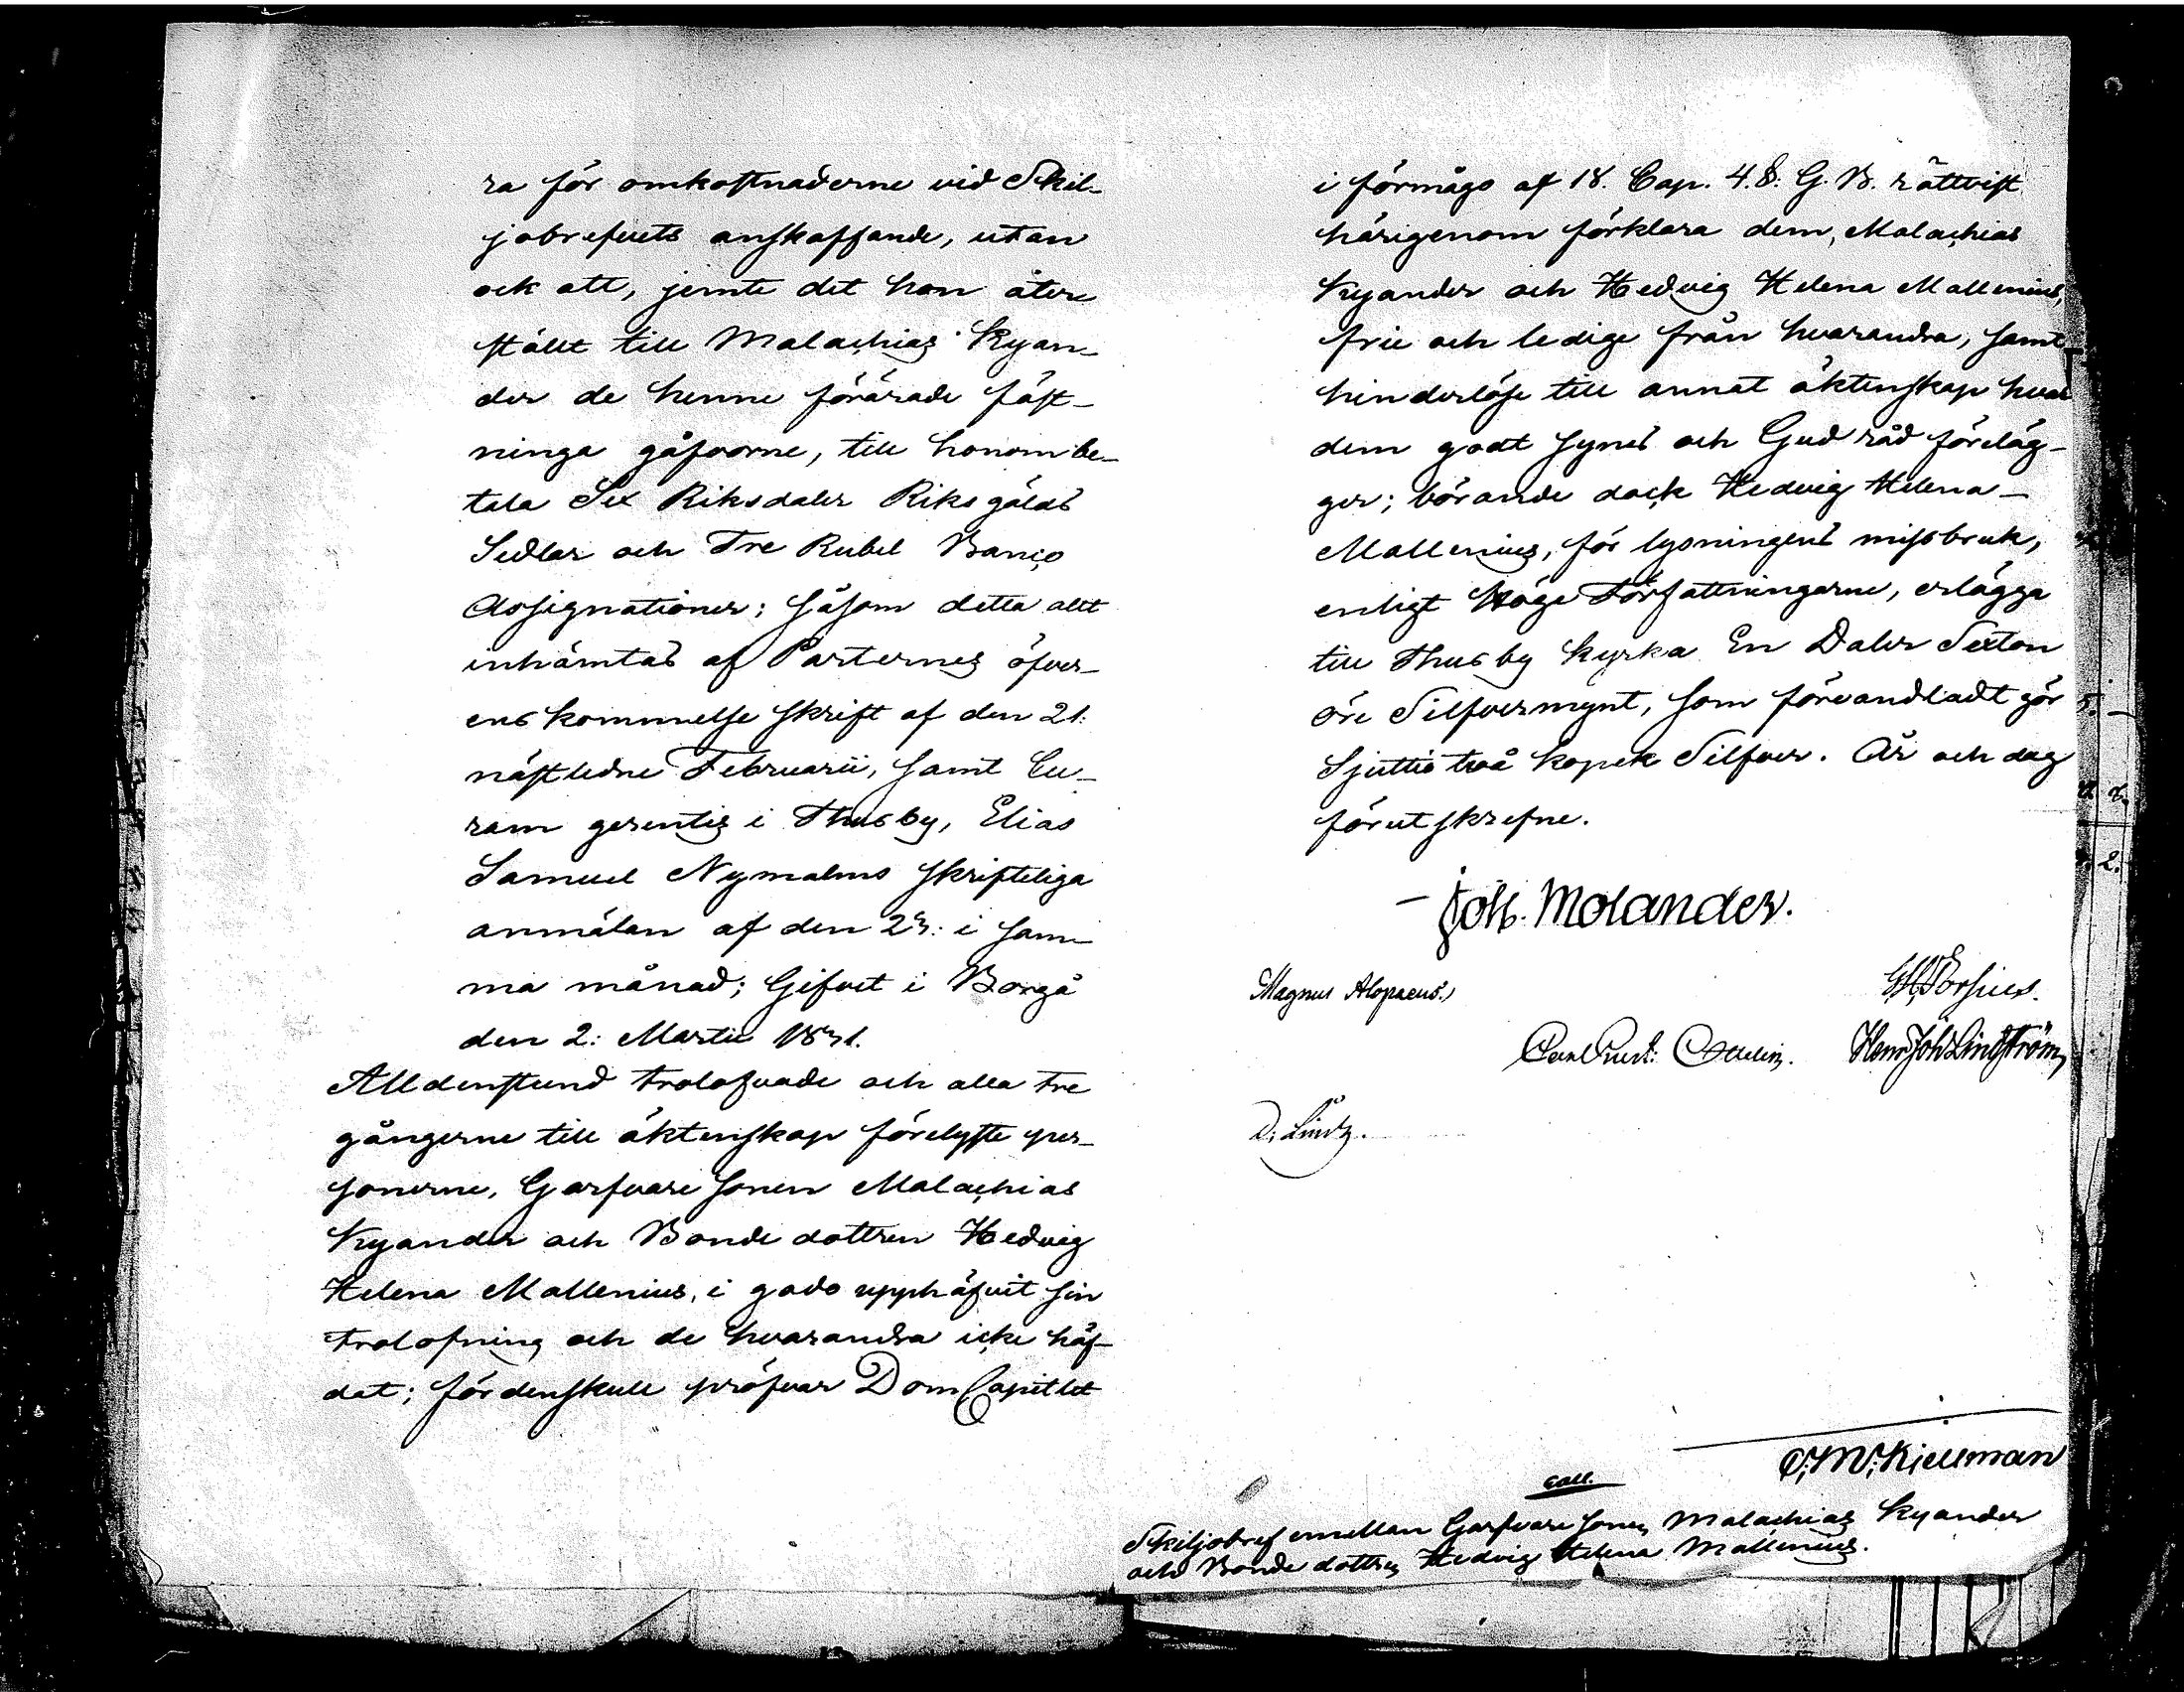 ra för omkostnaderne vid Skil-
jobrefvets anskaffande, utan
ock att, jemte det hon åter-
ställt till Malachias Kyan-
der de henne förärade fäst-
ninga gåfvorne, till honom be-
tala Sex Riksdaler Riksgälds
Sedlar och Tre Rubel Banco
Assignationer; såsom detta allt
inhämtas af Parternes öfver-
enskommelse skrift af den 21:
nästledne Februarii, samt Cu-
ram gerentis i Thusby, Elias
Samuel Nymalms skrifteliga
anmälan af den i sam-
ma månad; Gifvet i Borgå
den 2: Martii
Alldenstund trolofvade och alla tre
gångerne till äktenskap förelyste per-
sonerne, Garfvare sonen Malachias
Kyander och Bonde dottren Hedvig
Helena Mallenius, i godo upphäfvit sin
trolofning och de hvarandra icke häf-
dat; fördenskull pröfvar DomCapitlet
i förmågo af 18. Cap. 4. §. G. B. rättvist
härigenom förklara dem, Malachias
Kyander och Hedvig Helena Mallenius,
frie och ledige från hvarandra, samt
hinderlöse till annat äktenskap hvar
dem godt synes och Gud råd föreläg-
ger; börande dock Hedvig Helena
Mallenius, för lysningens missbruk,
enligt Höge Författningarne, erlägga
till Thusby Kyrka En Daler Sexton
öre Silfvermynt, som förvandladt gör
Sjuttio två kopek Silfver. År och dag
förutskrefne.
Joh. Molander.
Magnus Alopaeus.
Carl Gust. Ottelin.
Henr Joh Lindström,
D. Lindh.
C. M. Kiellman
coll.
Skiljobref emellan Garfvare sonen Malachias Kyander
och Bonde dottren Hedvig Helena Mallenius.